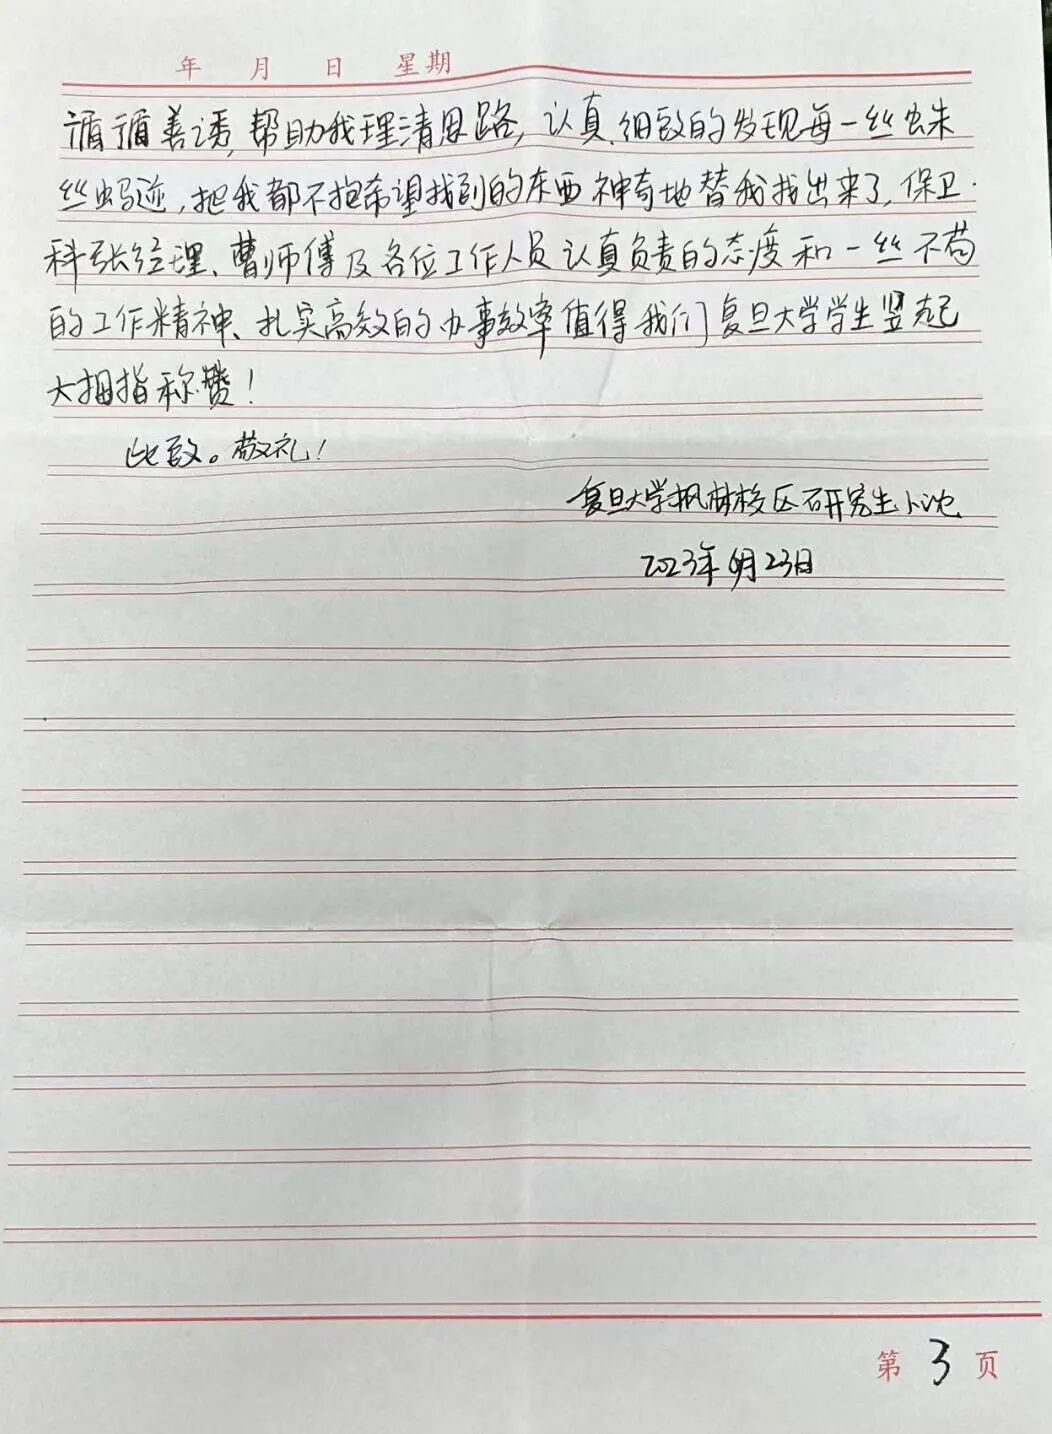 年 月 日 星期
循循善诱,帮助我理清思路,认真、细致的发现每一丝蛛
丝蚂迹,把我都不抱希望找到的东西神奇地替我找出来了,保卫
科张经理、曹师傅及各位工作人员认真负责的态度和一丝不苟
的工作精神、扎实高效的办事效率值得我们复旦大学学生竖起
大拇指称赞!
此致。敬礼!
复旦大学枫林校区研究生小沈
2023年6月23日
第 3 页